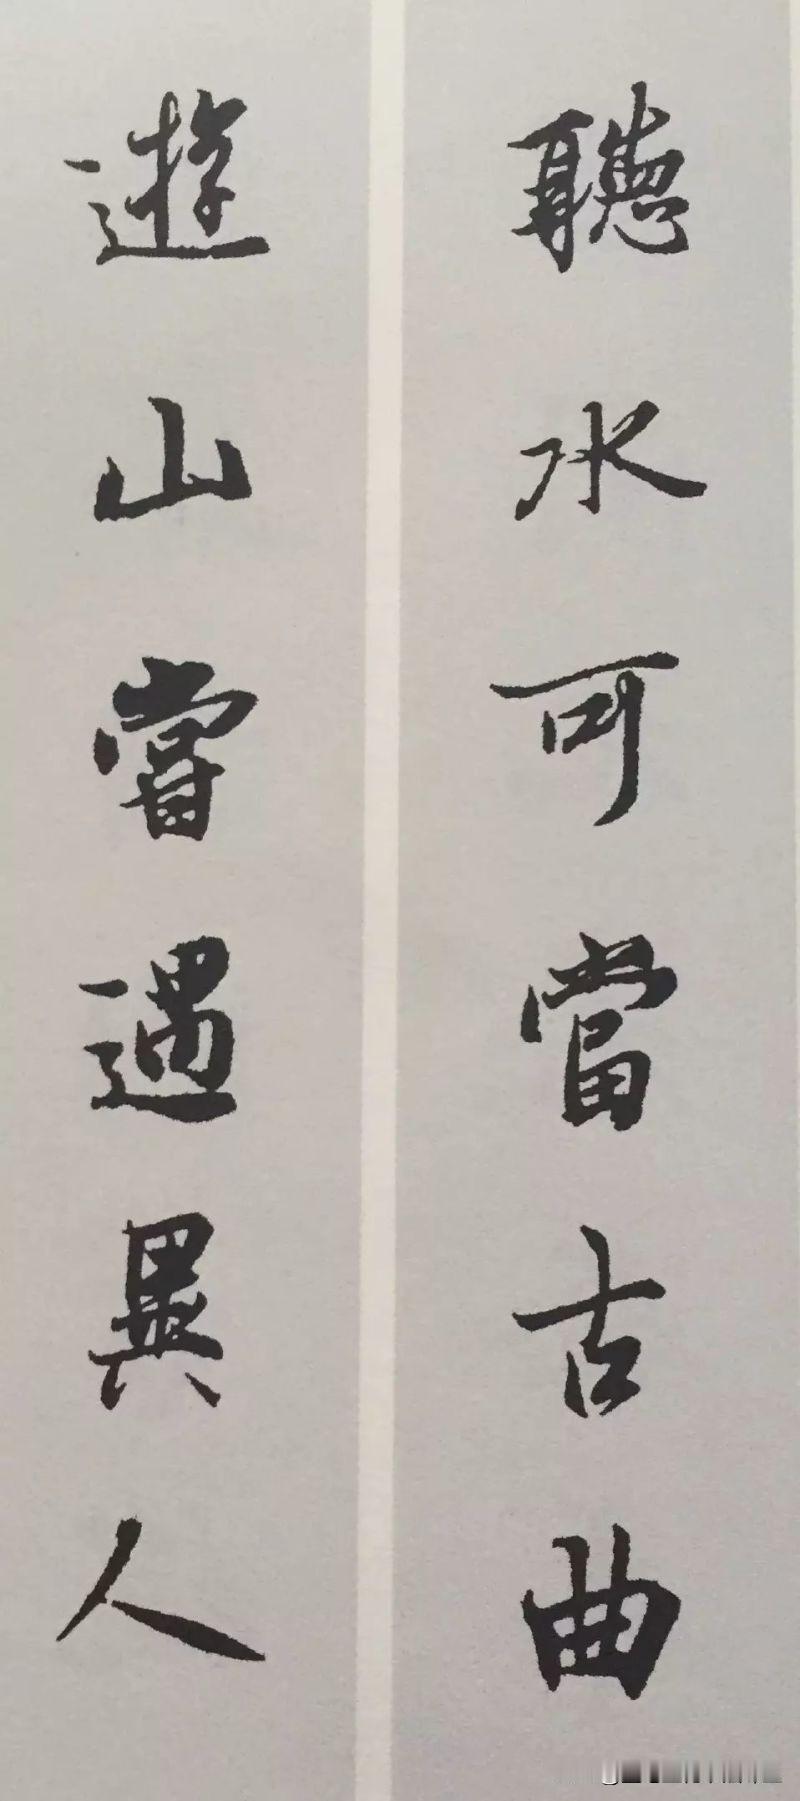 聽水可當古曲
遊山嘗遇異人